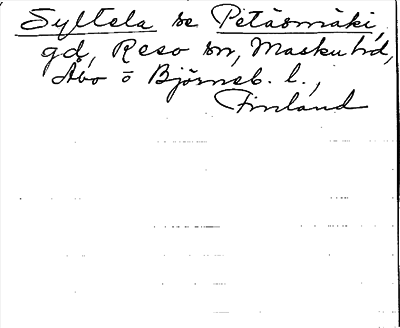 Syltela se Petäsmäki,
gd, Reso sn, Masku hd,
Åbo o Björneb. l.,
Finland